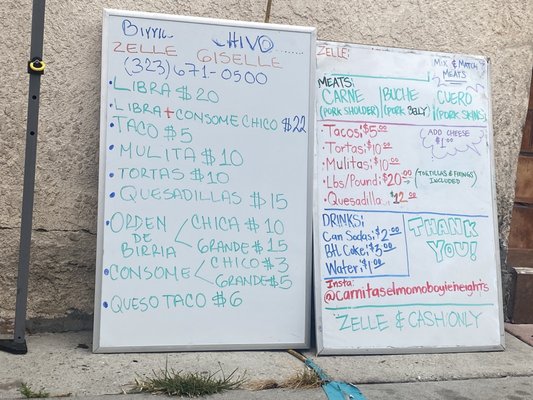 CHIVO........
ZELLE GISELLE
(323)671-0500
• LIBRA $20
• LIBRA + CONSOME CHICO $22
• TACO $5
• MULITA $10
• TORTAS $10
• QUESADILLAS $15
• ORDEN DE BIRRIA
CHICA $10
GRANDE $15
• CONSOME
CHICO $3
GRANDE $5
• QUESO TACO $6
ZELLE:
MIX & MATCH
MEATS
MEATS:
CARNE
(PORK SHOLDER)
BUCHE
(PORK BELLY)
CUERO
(PORK SKINS)
• Tacos: $5.00
• Tortas: $10.00
• Mulitas: $10.00
• Lbs/Pound: $20.00 → (TORTILLAS & FIXINGS INCLUDED)
• Quesadilla: $12.00
ADD CHEESE
$1.00
DRINKS:
Can Sodas: $2.00
Btl Coke: $5.00
Water: $1.00
THANK
YOU!
Insta:
@carnitaselmomoboyleheights
ZELLE & CASH ONLY